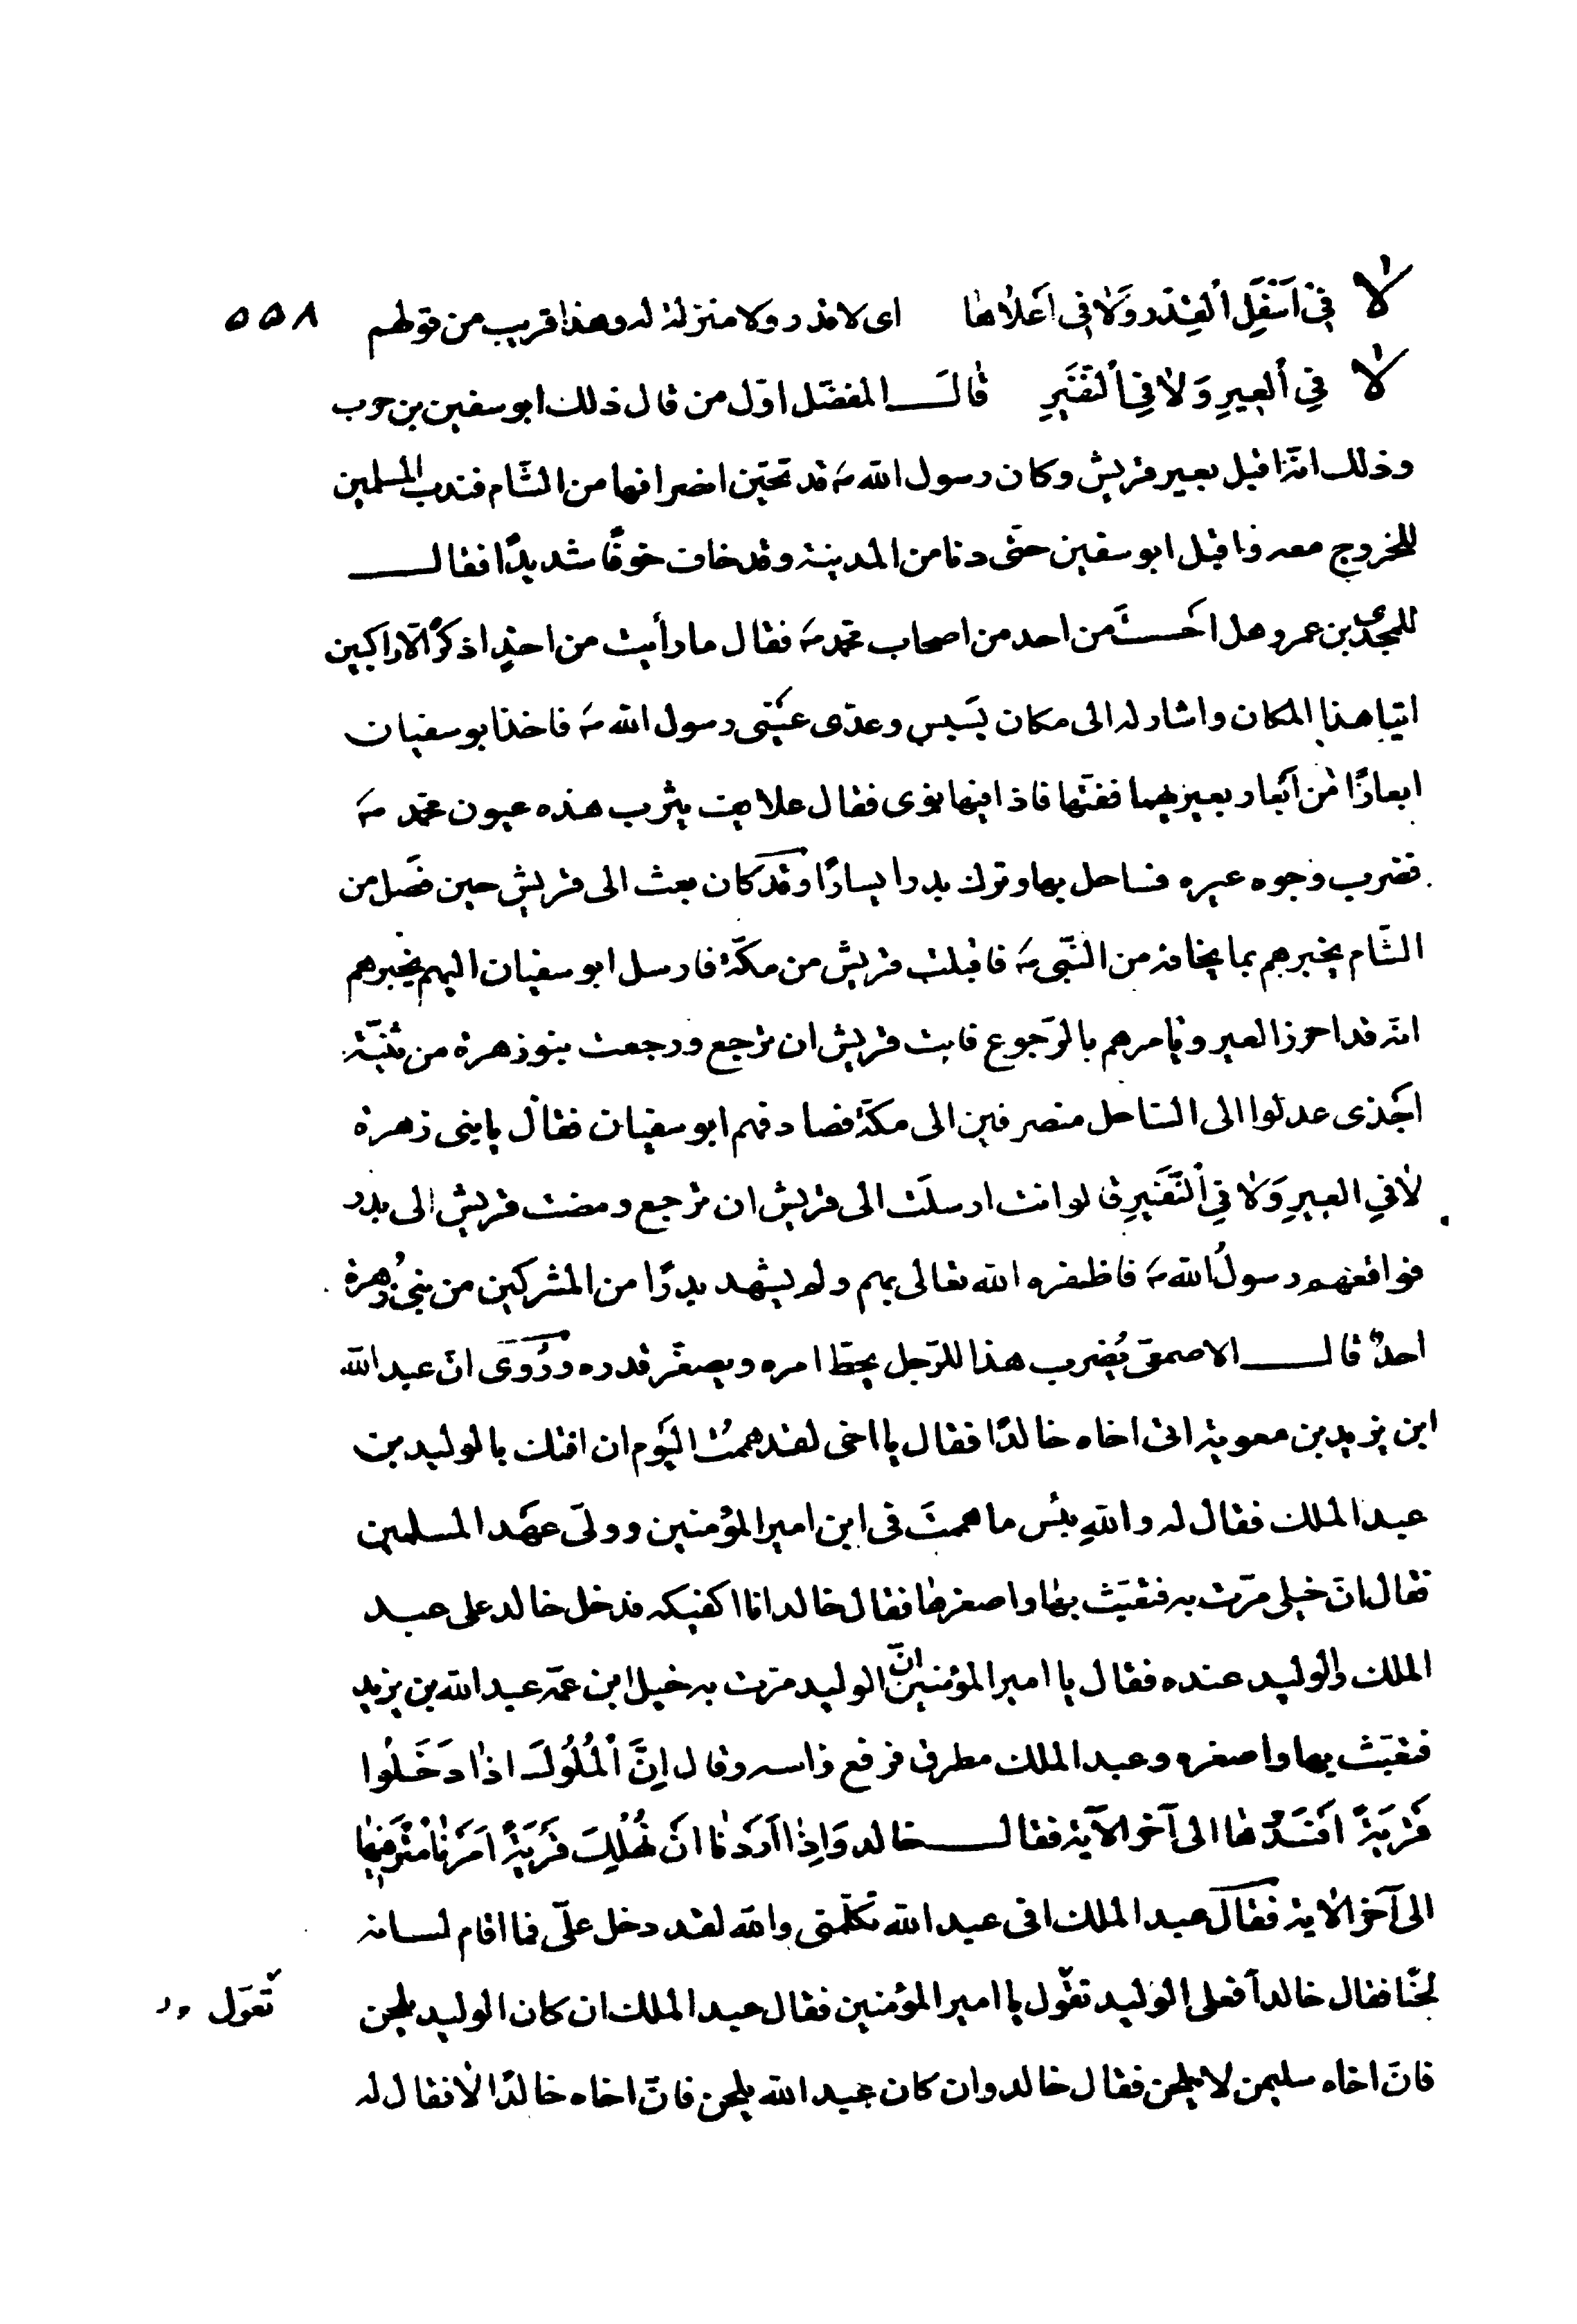 لا فِي اَسْفَلِ اُلْقِدْرِ وَلٰا فِى اَعْلٰاهٰا اى لا قدر ولا منزلة له وهذا قريب من قولهم ۵۵۸
لا فِي اُلْعِيرِ وَلٰا فِي اُلنَّفِيرِ قٰالَ المفضّل اوّل من قال ذلك ابو سفين بن حرب
وذلك انّه اقبل بعير قريش وكان رسول الله ص قد تحيّن انصرافها من الشّام فندب المسلمين
للخروج معه واقبل ابو سفين حتّى دنا من المدينة وقد خاف خوفًا شديدًا فقال
للمجدىّ بن عمرو هل احسستَ من احد من اصحاب محمد ص فقال ما رأيت من احدٍ اذكره الّا راكبين
اتيا هذا المكان واشار له الى مكان بَسْبس وعدّى عَيْنَى رسول الله ص فاخذ ابو سفيان
ابعارًا من اَبْعار بعيريهما ففتّها فاذا فيها نوى فقال علائف يثرب هذه عيون محمّد ص
فضرب وجوه عيره فساحل بها وترك بدرا يسارًا وقد كان بعث الى قريش حين فَصَل من
الشّام يخبرهم بما يخافه من النّبى ص فاقبلت قريش من مكّة فارسل ابو سفيان اليهم يخبرهم
انّه قد احرز العير ويأمرهم بالرّجوع فابت قريش ان ترجع ورجعت بنو زهرة من ثنيّة
اَجْذى عدلوا الى السّاحل منصرفين الى مكّة فصادفهم ابو سفيان فقال يا بنى زهرة
لٰا فِي العِيرِ وَلٰا فِي اُلنَّفِيرِ ق لو انت ارسلتَ الى قريش ان ترجع ومضت قريش الى بدر
فواقعهم رسولُ الله ص فاظفره الله تعالى بهم ولم يشهد بدرًا من المشركين من بنى زُهرة
احدٌ قال الاصمعى يُضرب هذا للرّجل يحطّ امره ويصغّر قدره ورُوِىَ انّ عبد الله
ابن يزيد بن معوية اتى اخاه خالدًا فقال يا اخى لقد هممتُ اليوم ان افتك بالوليد بن
عبد الملك فقال له والله بئس ما هممتَ فى ابن امير المؤمنين وولىّ عهد المسلمين
فقال انّ خيلى مرّت به فتعبّث بهٰا واصغرهٰا فقال خالد انا اكفيكه فدخل خالد على عبد
الملك والوليد عنده فقال يا امير المؤمنين انّ الوليد مرّت به خيل ابن عمّه عبد الله بن يزيد
فتعبّث بها واصغره وعبد الملك مطرق فرفع رأسه وقال اِنَّ اُلْمُلُوكَ اذٰا دَخَلُوا
قَرْيَةً اَفْسَدُوهٰا الى آخر الآية فقال خالد وَاِذٰا اَرَدْنٰا انْ نُهْلِكَ قَرْيَةً اَمَرْنٰا مُتْرَفِيهٰا
الى آخر الاية فقال عبد الملك افى عبد الله تكلّمنى والله لقد دخل علىّ فما اقام لسانه
لحنًا فقال خالد اَفعلى الوليد تعوّل يا امير المؤمنين فقال عبد الملك ان كان الوليد يلحن تعوّل
فانّ اخاه سليمن لا يلحن فقال خالد وان كان عبد الله يلحن فانّ اخاه خالدًا لٰا فقال له